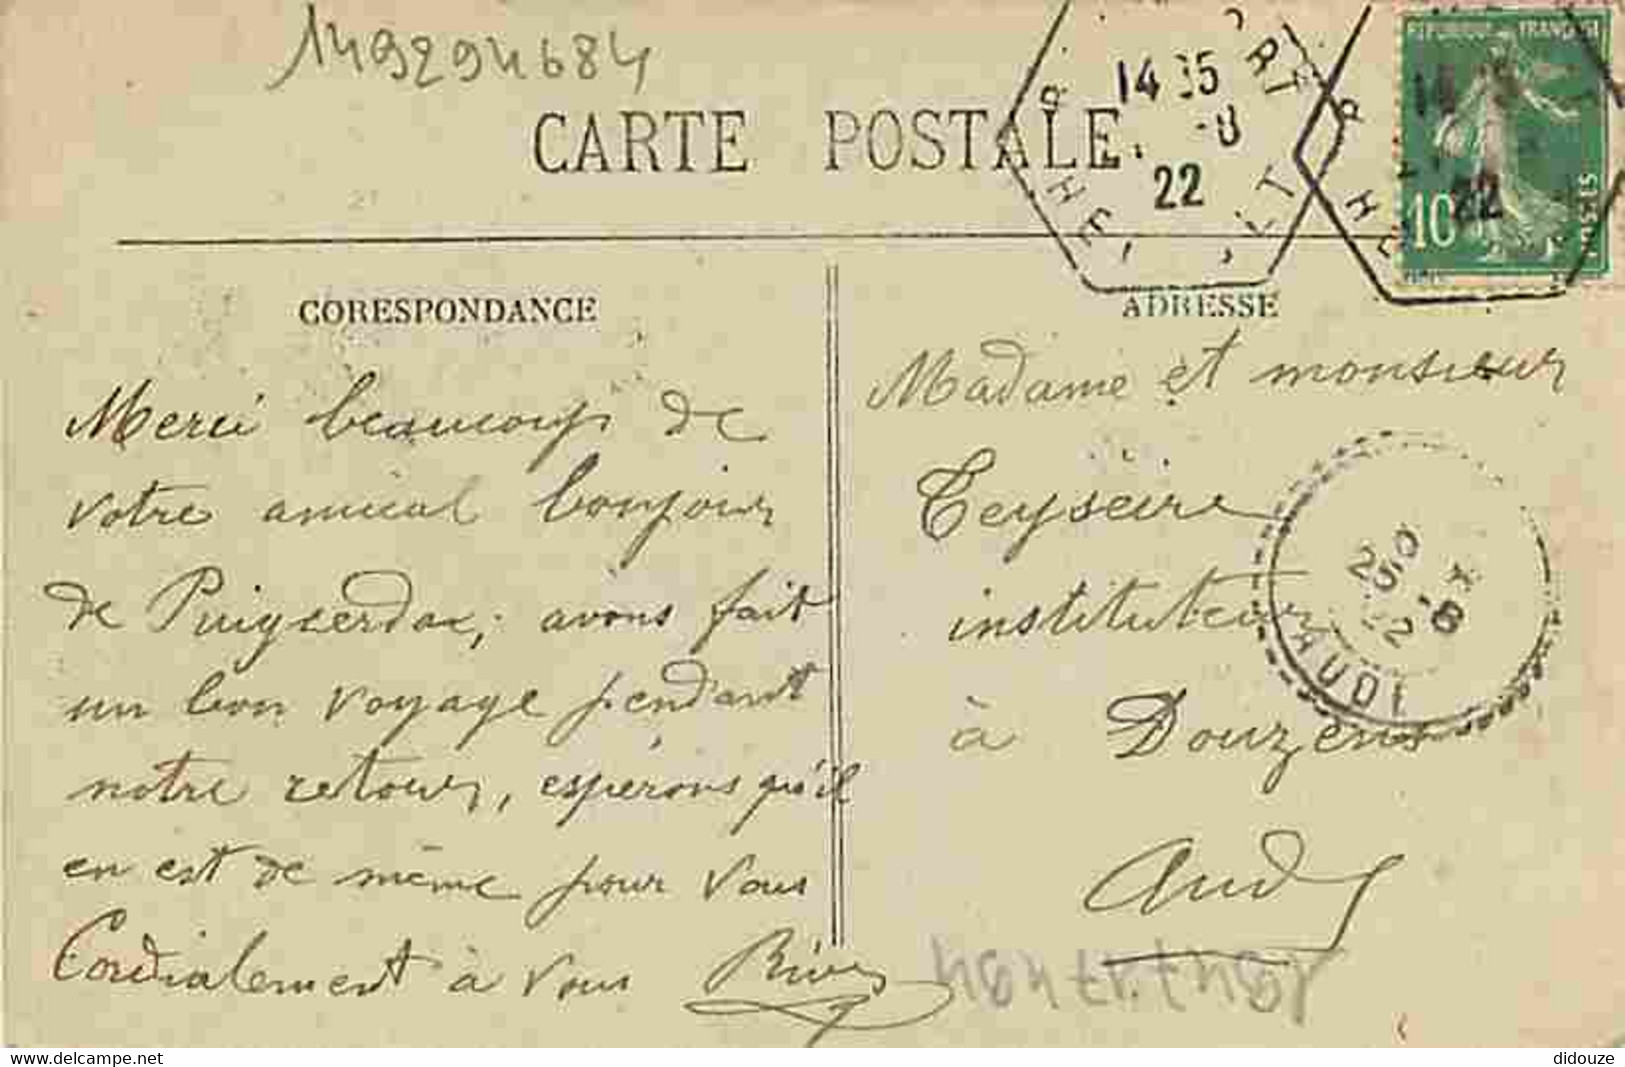 1492942684
CARTE POSTALE
14 35
-8
22
RÉPUBLIQUE FRANÇAISE
10
POSTES
22
CORESPONDANCE
ADRESSE
Merci beaucoup de
votre amical bonjour
de Puigcerda, avons fait
un bon voyage pendant
notre retour, espérons qu'il
en est de même pour vous
Cordialement à vous Rives
Madame et monsieur
Teyseire
instituteur
à Douzens
Aude
25 -8
22
AUD
delcampe.net
didouze